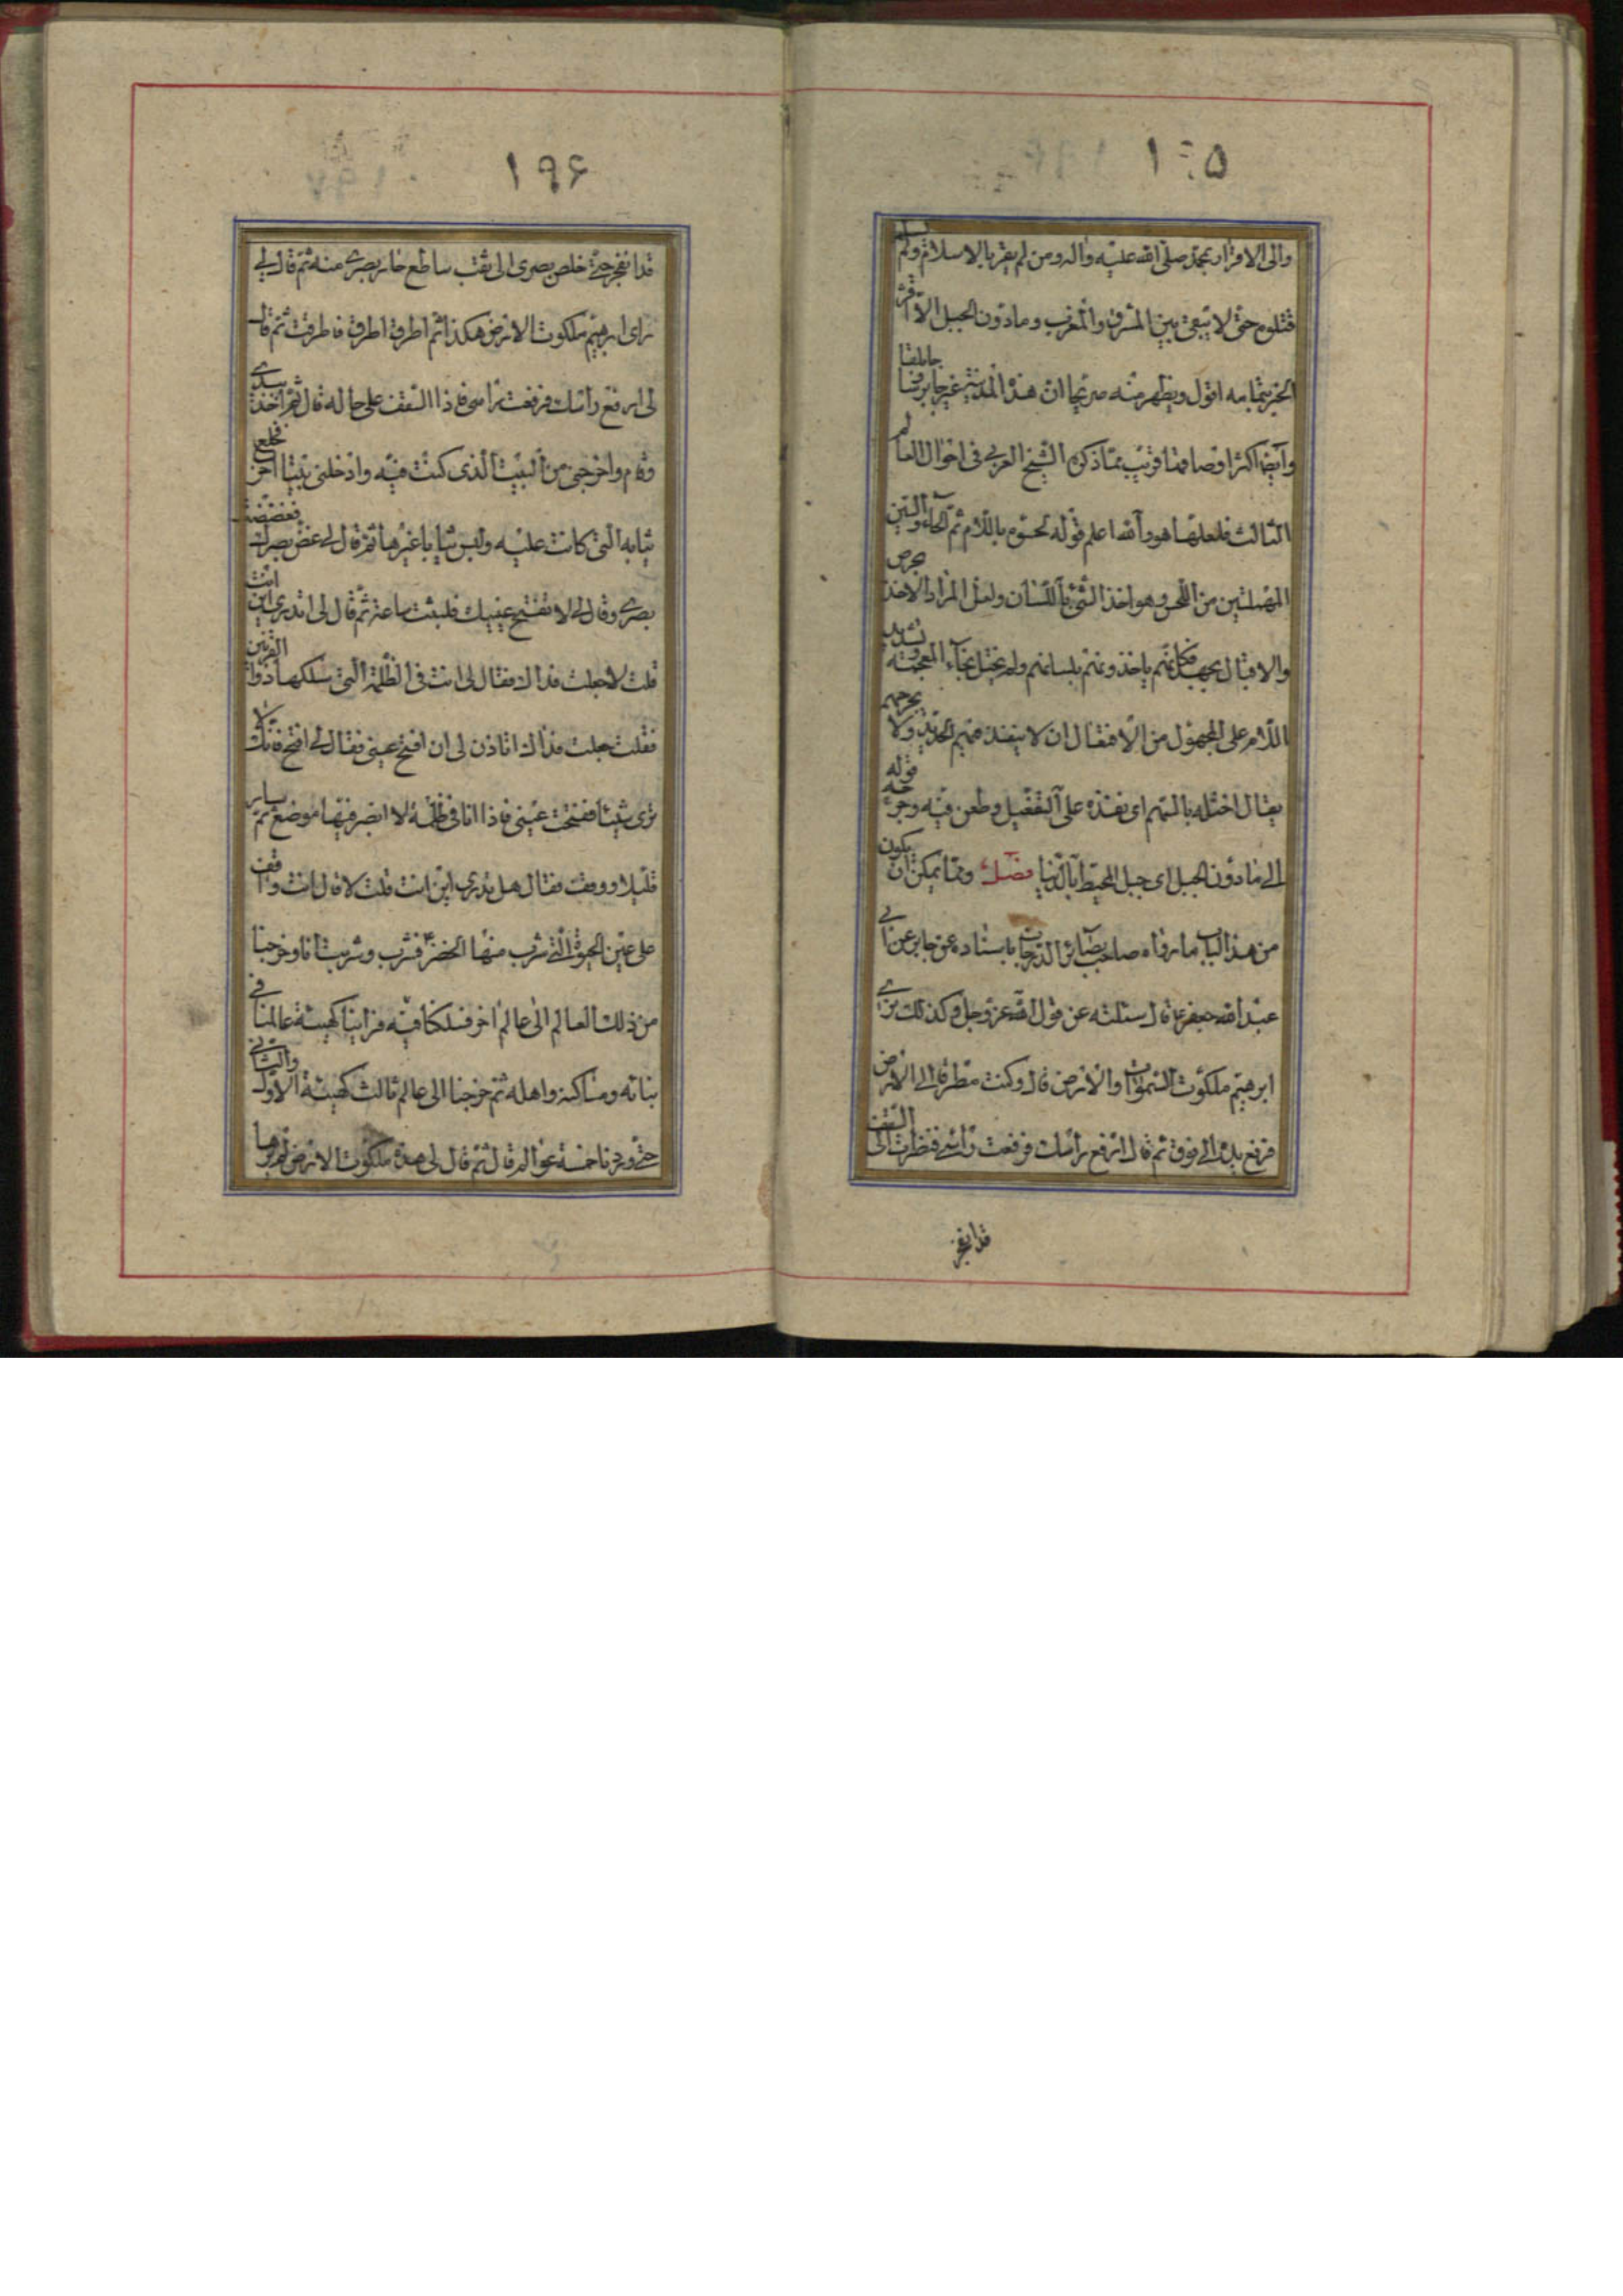 ١٩٥
والی الاقرار بمحمد صلی الله علیه واله ومن لم یقر بالاسلام ولم یسلم
قتلوه حتی لا یبقی بین المشرق والمغرب ومادون الجبل الا اقر
الخبر بتمامه اقول ویظهر منه صریحا ان هذه المدینة غیر جابرقا وجابلقا
وایضا اکثر اوصافها قریب مما ذکره الشیخ العربی فی احوال العالم
الثالث فلعلها هو والله اعلم قوله لحسوه باللام ثم الحاء والسین
المهملتین من اللحس وهو اخذ الشئ باللسان ولعل المراد الاخذ بحرص
والاقبال بجهد فکانهم یاخذونهم بلسانهم ولم یختل بخاء المعجمة وتشدید
اللام علی المجهول من الافتعال ان لا ینفذ فیهم الحدید ولا یجرحهم
یقال اختله بالسهم ای نفذه علی التفعیل وطعن فیه وجرحه قوله
الی مادون الجبل ای جبل المحیط بالدنیا فصل ومما یمکن ان یکون
من هذا الباب ما رواه صاحب بصائر الدرجات باسناده عن جابر عن ابی
عبد الله جعفر ع قال سئلته عن قول الله عز وجل وکذلک نری
ابرهیم ملکوت السموات والارض قال وکنت مطرقا الی الارض
فرفع یده الی فوق ثم قال ارفع راسک فرفعت راسی فنظرت الی السقف
قد انفجر
١٩۶
قد انفجر حتی خلص بصری الی ثقب ساطع حار بصری منه ثم قال لی
رای ابرهیم ملکوت الارض هکذا ثم اطرق اطرق فاطرقت ثم قال
لی ارفع راسک فرفعت راسی فاذا السقف علی حاله قال ثم اخذ بیدی
وقام واخرجنی من البیت الذی کنت فیه وادخلنی بیتا اخر فخلع
ثیابه التی کانت علیه ولبس ثیابا غیرها ثم قال لی غض بصرک فغضضت
بصری وقال لی لا تفتح عینیک فلبثت ساعة ثم قال لی اتدری این انت
قلت لا جعلت فداک فقال لی انت فی الظلمة التی سلکها ذو القرنین
فقلت جعلت فداک اتاذن لی ان افتح عینی فقال لی افتح فانک لا
تری شیئا ففتحت عینی فاذا انا فی ظلمة لا ابصر فیها موضع ثم سار
قلیلا ووقف فقال هل تدری این انت قلت لا قال انت واقف
علی عین الحیوة التی شرب منها الخضر ع فشرب وشربت انا وخرجنا
من ذلک العالم الی عالم اخر فسلکنا فیه فراینا کهیئة عالمنا فی
بنائه ومساکنه واهله ثم خرجنا الی عالم ثالث کهیئة الاول والثانی
حتی وردنا خمسة عوالم قال ثم قال لی هذه ملکوت الارض لم یرها